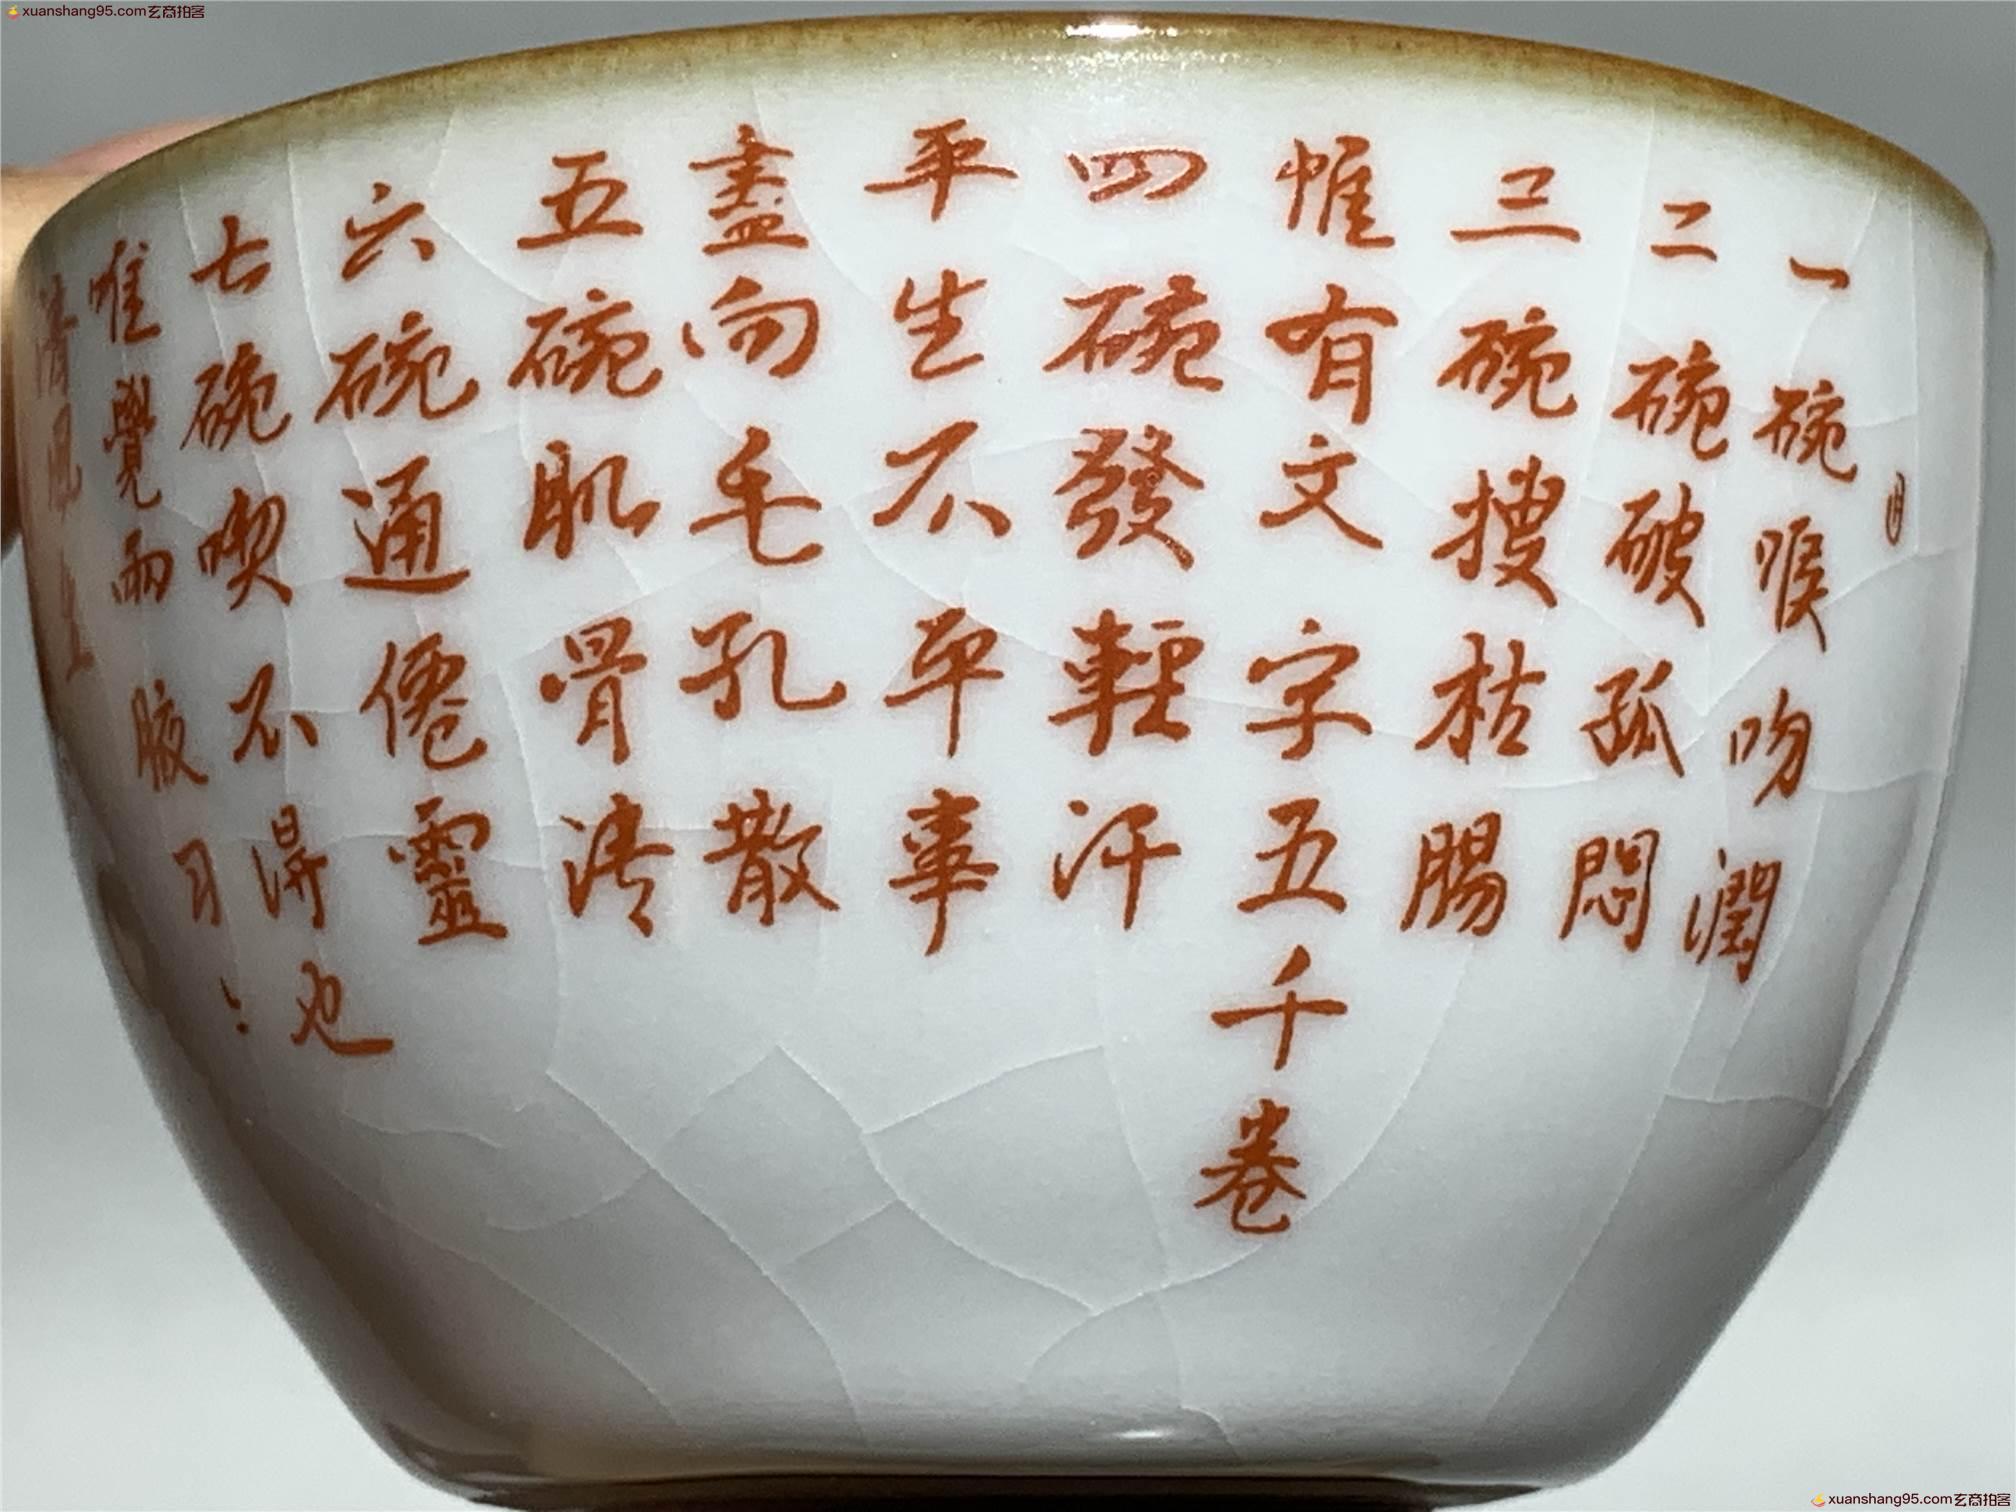 xuanshang95.com玄商拍客
一碗喉吻潤
二碗破孤悶
三碗搜枯腸
惟有文字五千卷
四碗發輕汗
平生不平事
盡向毛孔散
五碗肌骨清
六碗通僊靈
七碗喫不得也
唯覺兩腋習:
清風生
xuanshang95.com玄商拍客